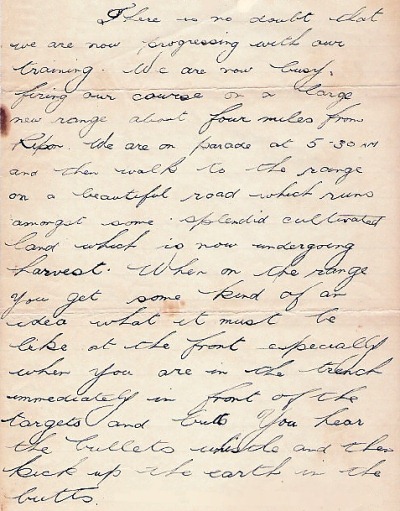 There is no doubt that
we are now progressing with our
training. We are now busy,
firing our course on a large
new range about four miles from
Ripon. We are on parade at 5-30 AM
and then walk to the range
on a beautiful road which runs
amongst some splendid cultivated
land which is now undergoing
harvest. When on the range
you get some kind of an
idea what it must be
like at the front especially
when you are in the trench
immediately in front of the
targets and butts You hear
the bullets whistle and then
kick up the earth in the
butts.